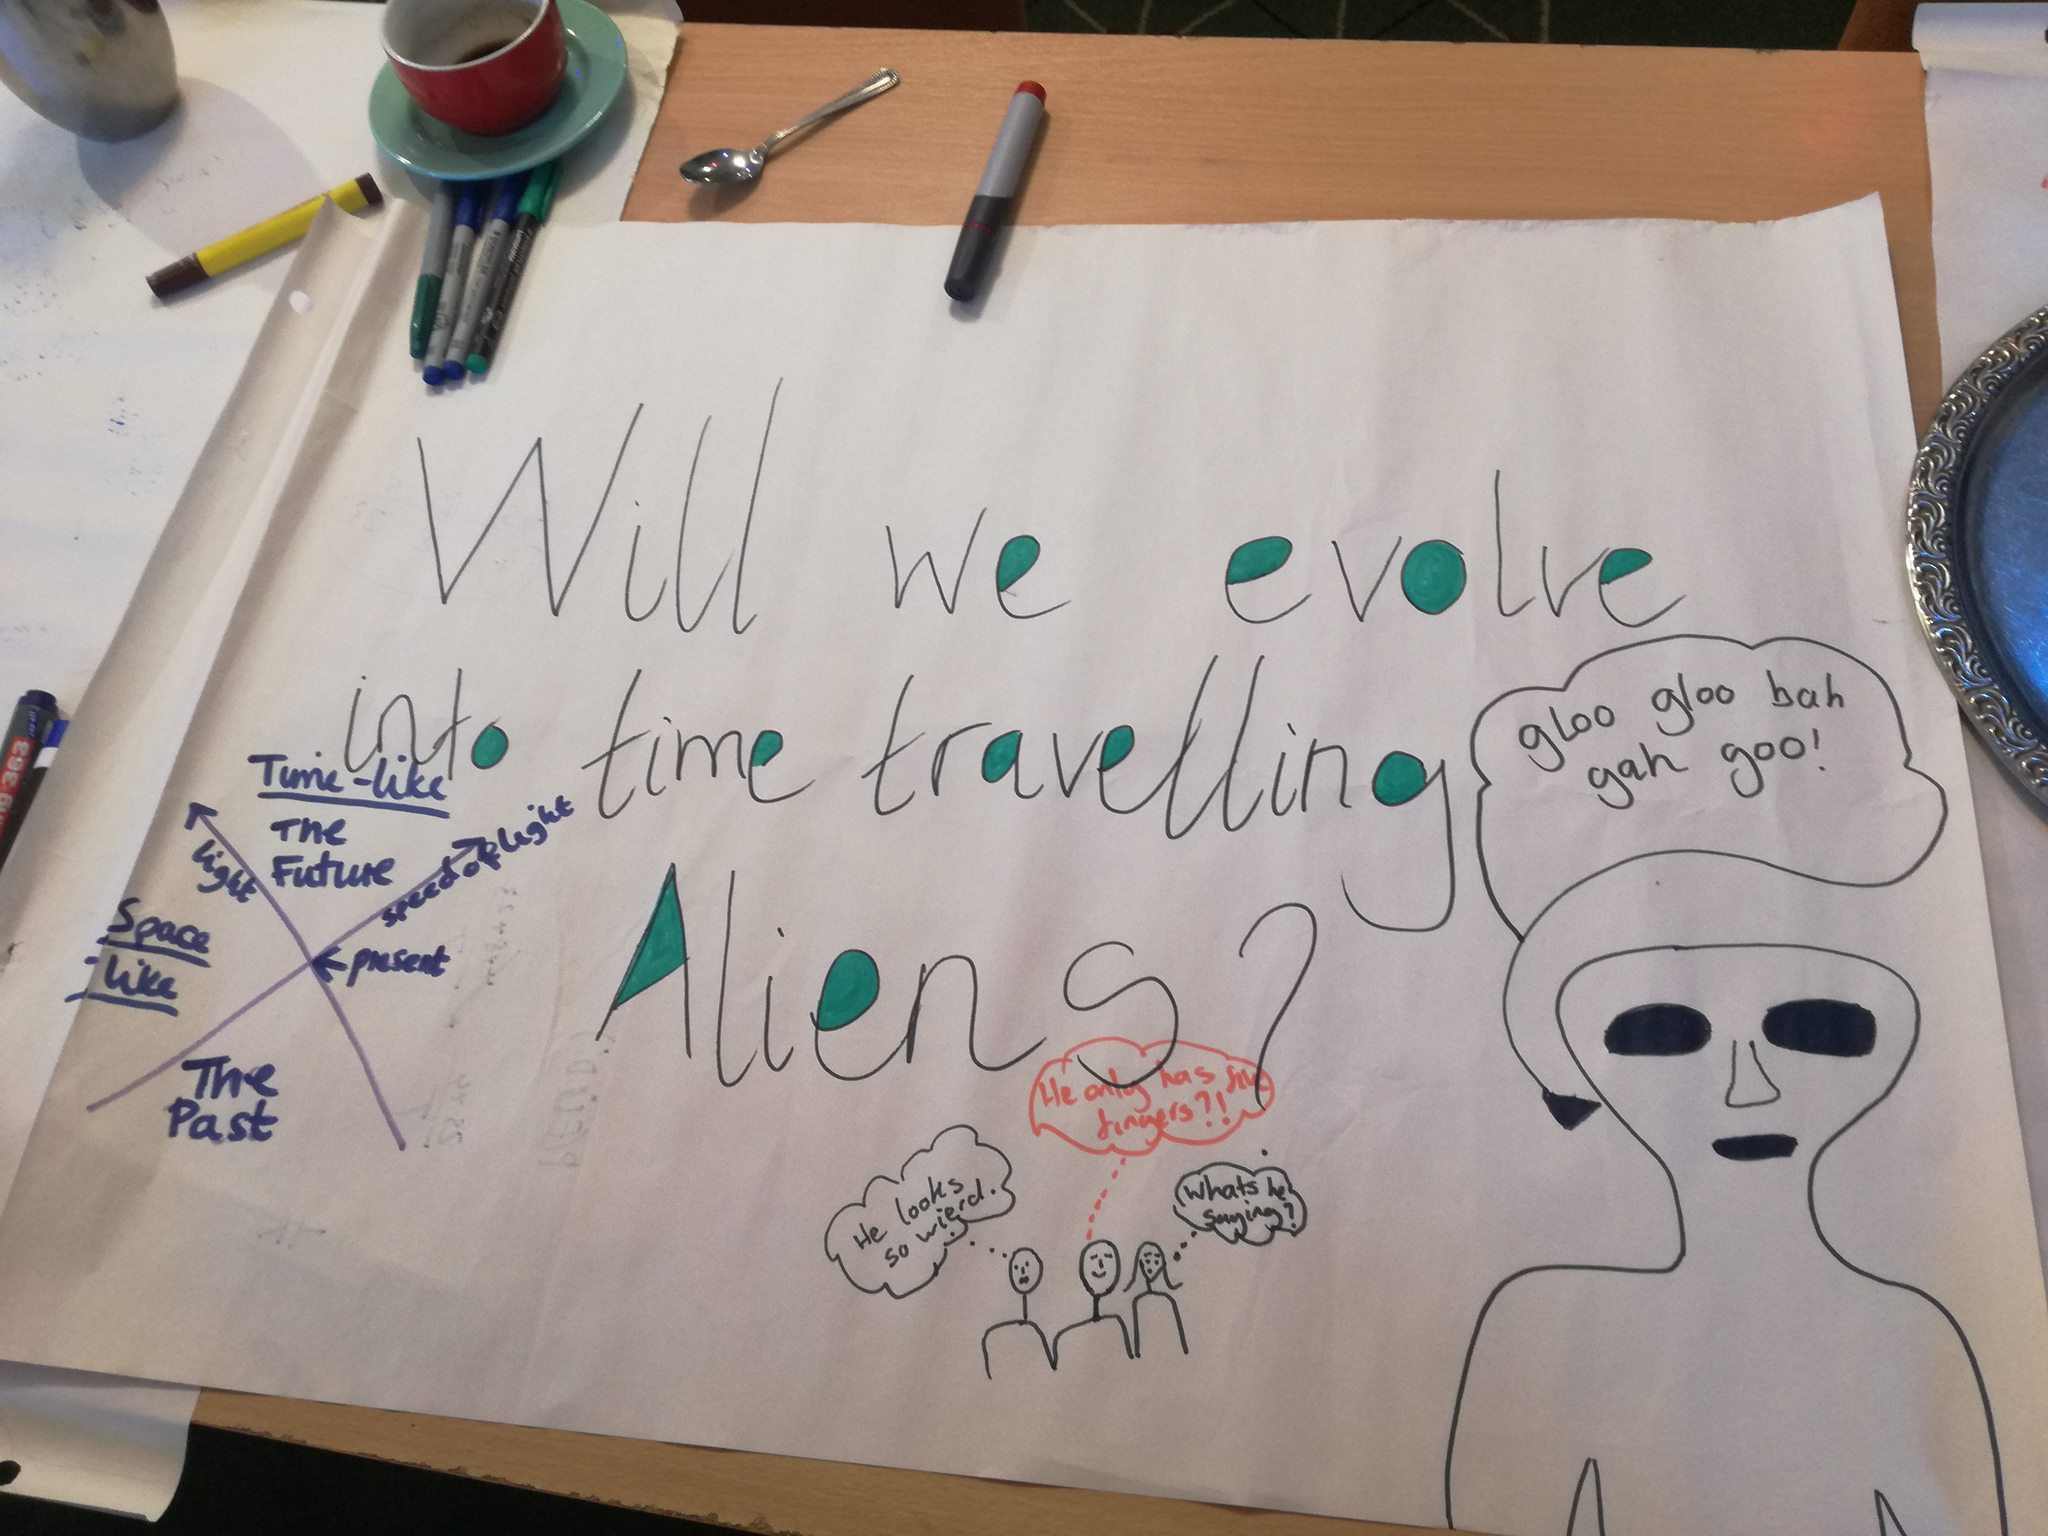 Will we evolve
into time travelling
Aliens?
gloo gloo bah
gah goo!
Time-like
The
Future
light
speed of light
Space
-like
present
The
Past
He only has five
fingers?!
He looks
so wierd.
Whats he
saying?